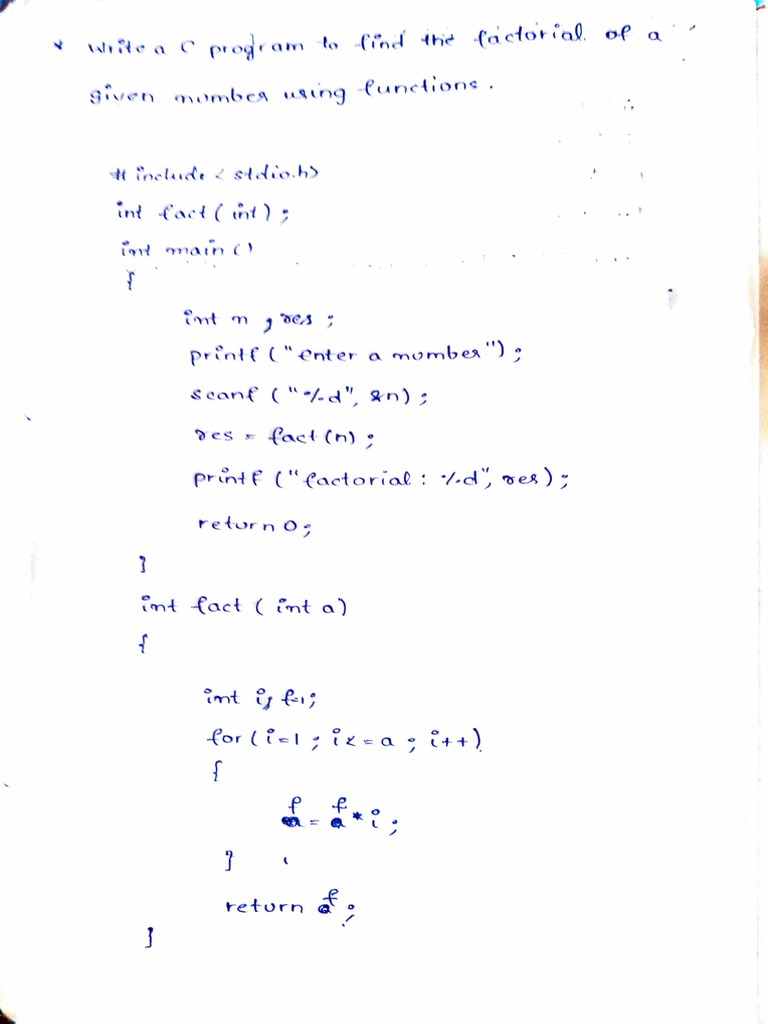 * Write a C program to find the factorial of a
given number using functions.
# include < stdio.h>
int fact ( int ) ;
int main ( )
{
int n , res ;
printf ( "enter a number") ;
scanf ( "%d", &n) ;
res = fact (n) ;
printf ( "factorial : %d", res ) ;
return 0 ;
}
int fact ( int a)
{
int i, f=1;
for ( i=1 ; i<=a ; i++)
{
f = f * i ;
}
return f ;
}